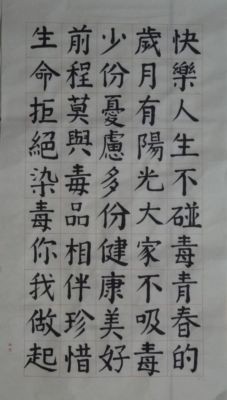 快樂人生不碰毒青春的
歲月有陽光大家不吸毒
少份憂慮多份健康美好
前程莫與毒品相伴珍惜
生命拒絕染毒你我做起